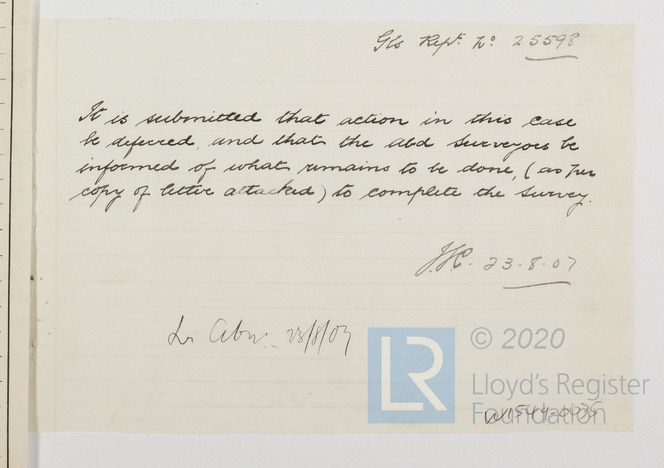 Gls Rept. No. 25598
It is submitted that action in this case
be deferred, and that the Abd Surveyors be
informed of what remains to be done, (as per
copy of letter attacked) to complete the survey.
23.8.07
Abn. 23/8/07
© 2020
LR
Lloyd's Register
Foundation
W1544-0035